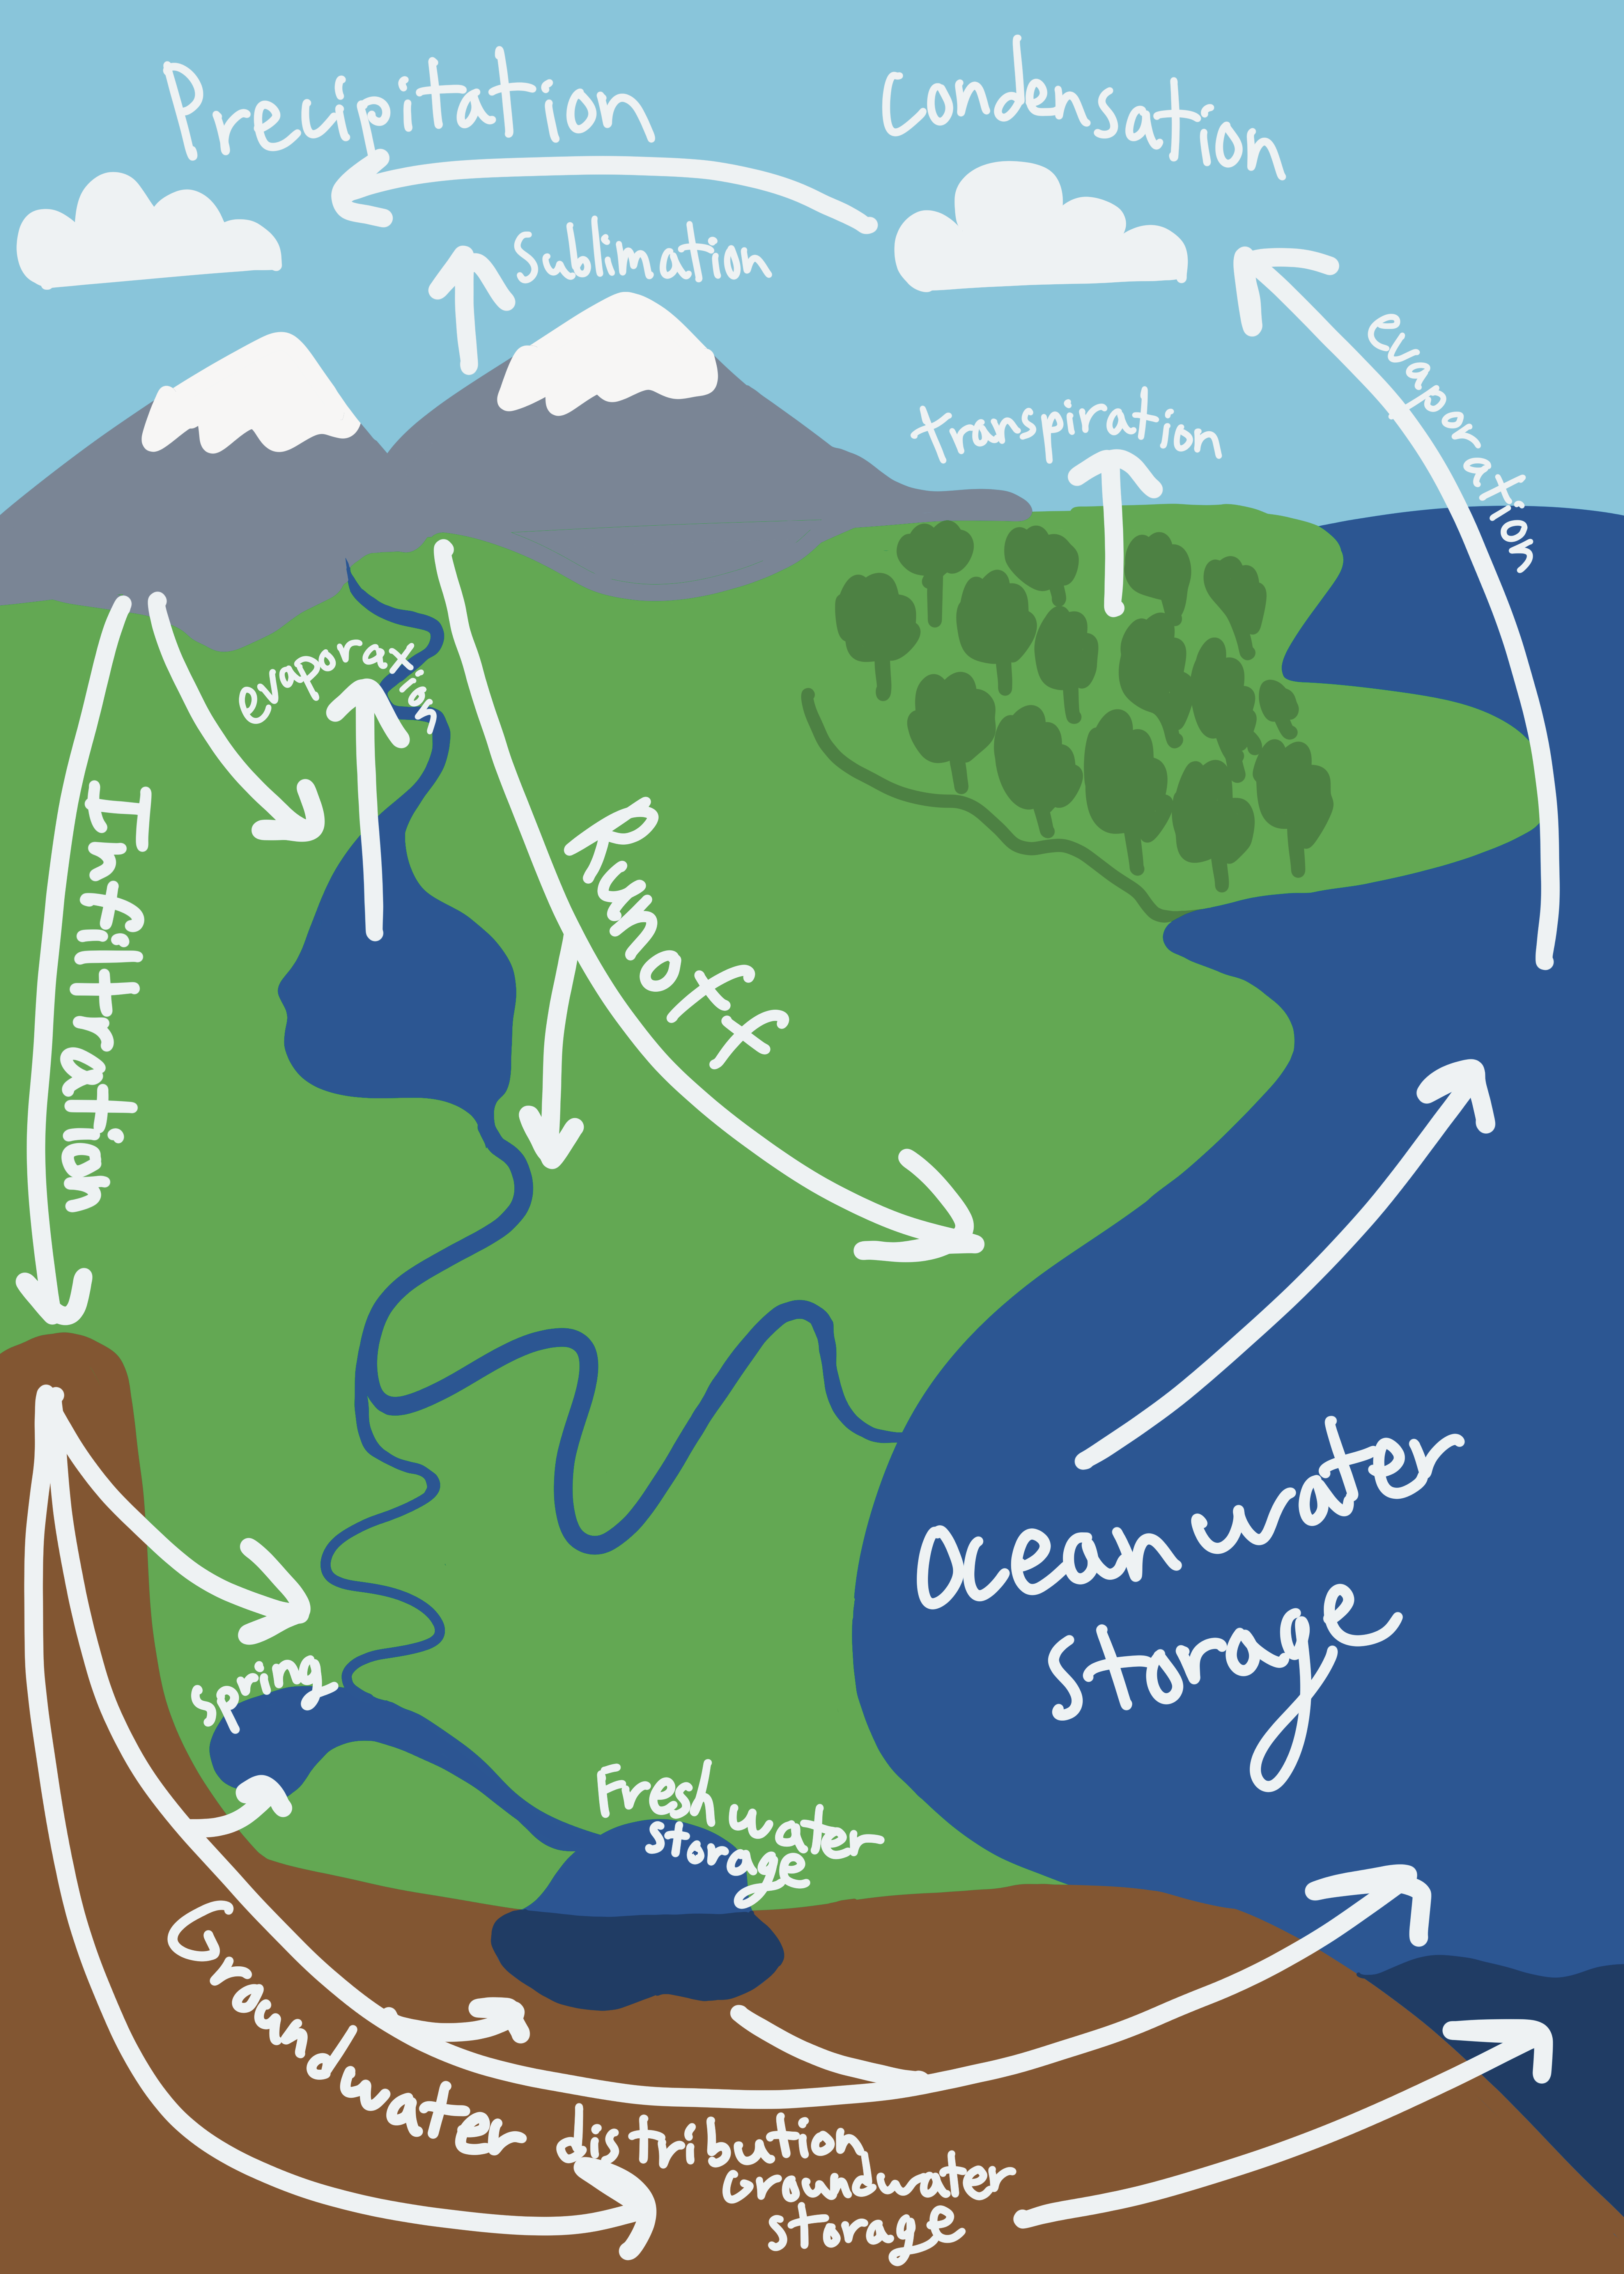 Precipitation
Condensation
Sublimation
evaporation
transpiration
evaporation
Infiltration
Runoff
Ocean water
storage
spring
Fresh water
storage
Groundwater distribution,
Groundwater
storage